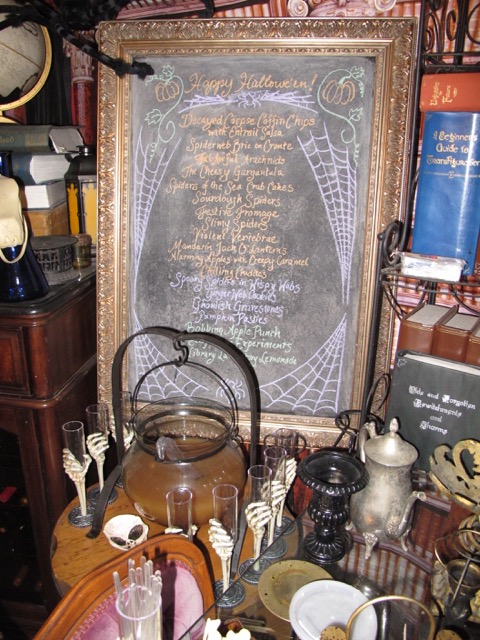 Happy Halloween!
Decayed Corpse Coffin Chips
with Entrail Salsa
Spiderweb Brie en Croute
Arachnids
The Cheesy Gargantula
Spiders of the Sea Crab Cakes
Sourdough Spiders
Festive Fromage
Slimy Spiders
Violent Vertebrae
Mandarin Jack O'Lanterns
Mummy Apples with Creepy Caramel
Chilling
Spooky Spiders in Wispy Webs
Ginger Web Cookies
Ghoulish Gravestones
Pumpkin Pasties
Bobbing Apple Punch
Experiments
Library Lemonade
A Beginners
Guide to
Transfiguration
Olde and Forgotten
Bewitchments
and
Charms